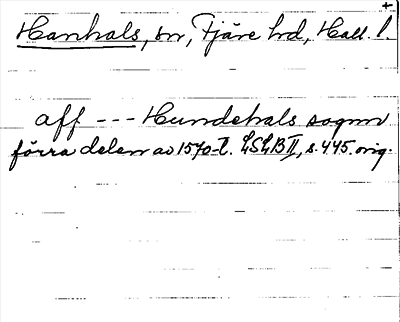 +
Hanhals, sn, Fjäre hd, Hall. l.
aff --- Hundehals sognn
förra delen av 1570-t. LSLB II, s. 445. orig.